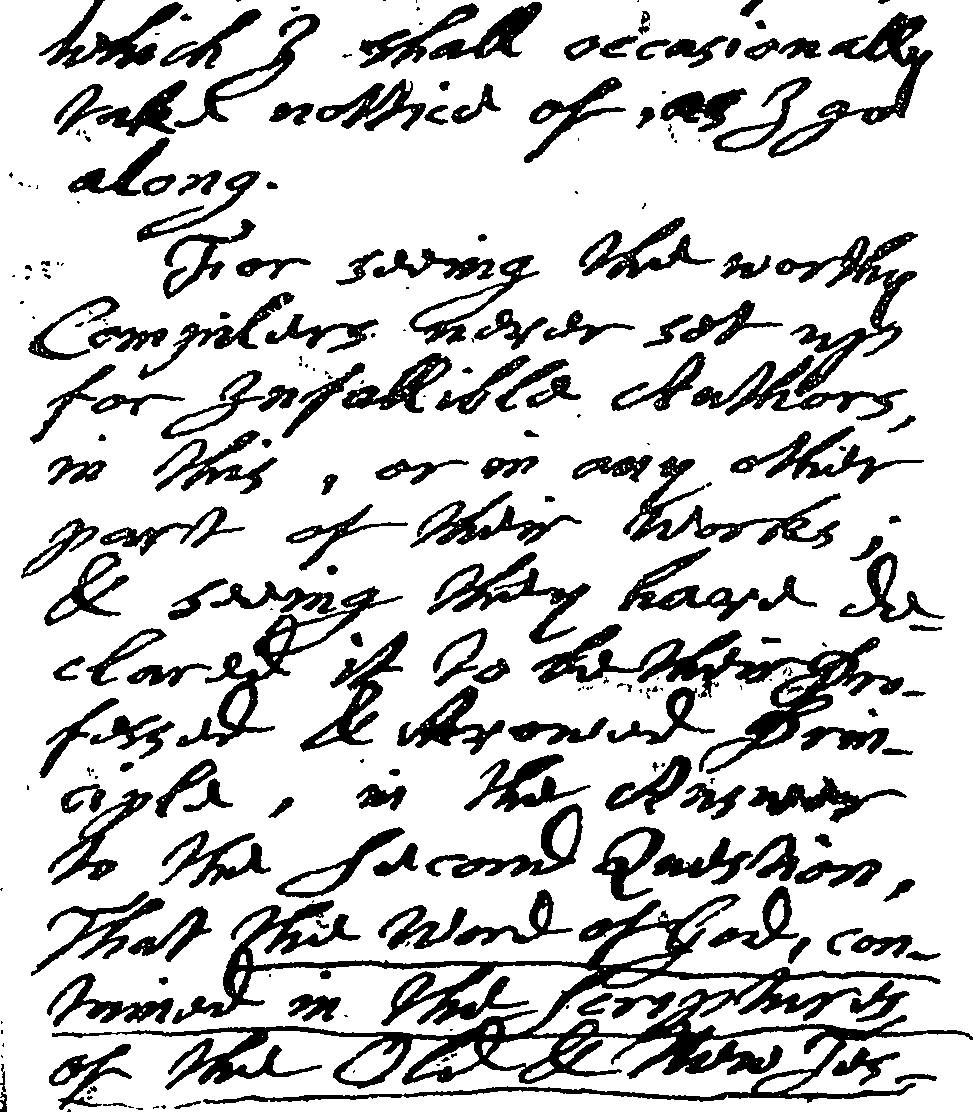 which I shall occasionally
take nottice of, as I go
along.
For seeing the worthy
Compilers never set up
for Infallible Authors,
in this, or in any other
part of their works;
& seeing they have de-
clared it to be their Pro-
fessed & Avowed Prin-
ciple, in the Answer
to the Second Question,
That the Word of God, con-
tained in the Scriptures
of the Old & New Tes-